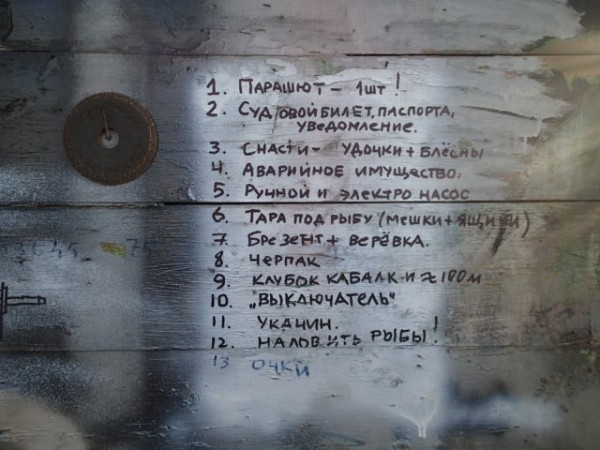 1. ПАРАШЮТ - 1шт!
2. СУДОВОЙ БИЛЕТ, ПАСПОРТА,
УВЕДОМЛЕНИЕ.
3. СНАСТИ - УДОЧКИ + БЛЁСНЫ
4. АВАРИЙНОЕ ИМУЩЕСТВО.
5. РУЧНОЙ И ЭЛЕКТРО НАСОС
6. ТАРА ПОД РЫБУ (МЕШКИ + ЯЩИКИ)
7. БРЕЗЕНТ + ВЕРЁВКА.
8. ЧЕРПАК
9. КЛУБОК КАБАЛКИ ≈ 100м
10. „ВЫКЛЮЧАТЕЛЬ"
11. УКАЧИН.
12. НАЛОВИТЬ РЫБЫ!
13 ОЧКИ